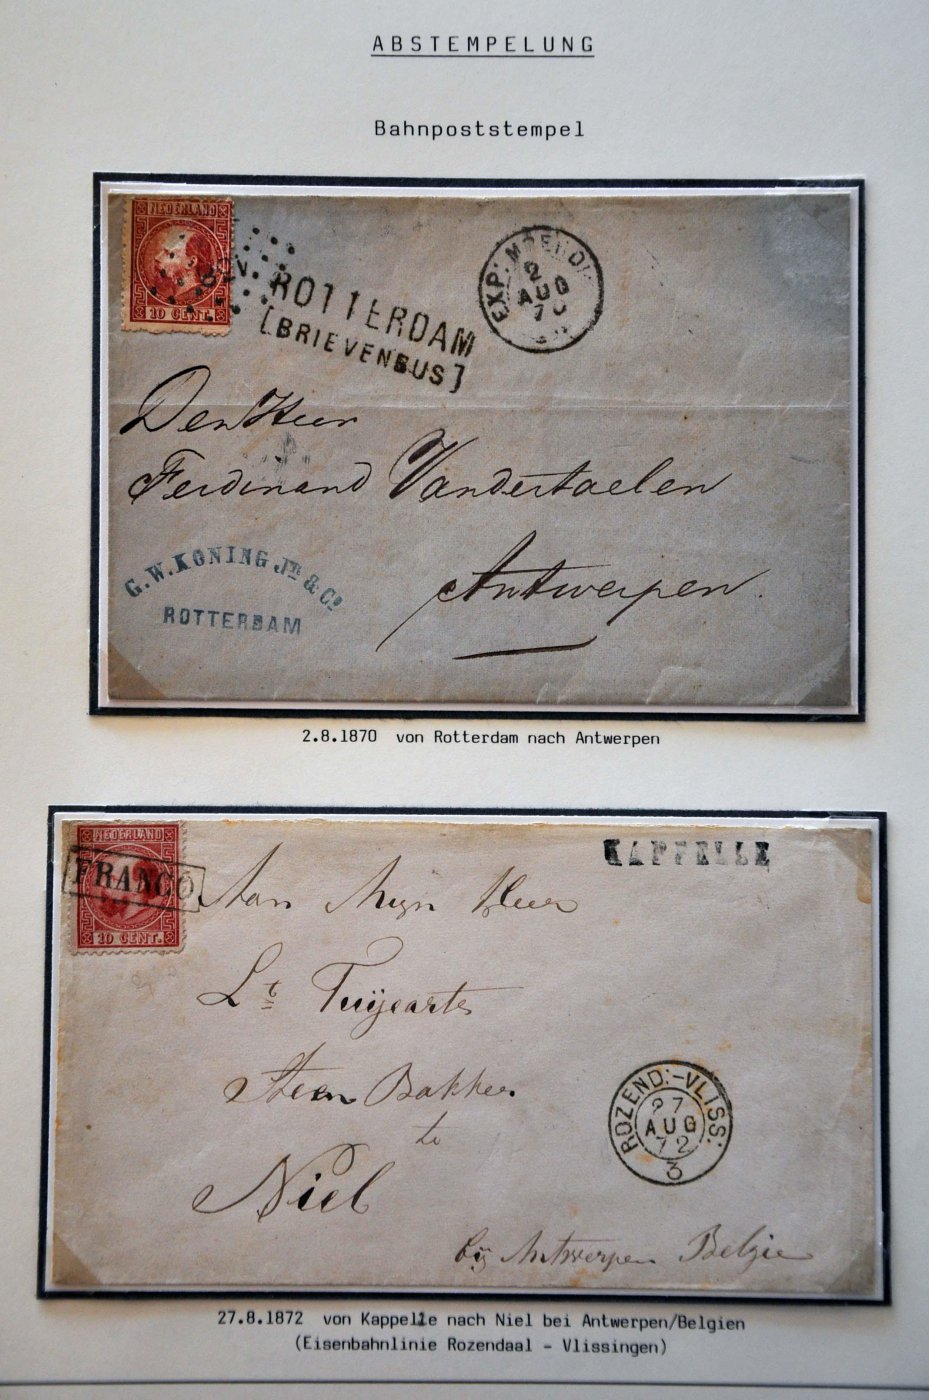 ABSTEMPELUNG
Bahnpoststempel
NEDERLAND
10 CENT.
ROTTERDAM
[BRIEVENBUS]
EXP:
2
AUG
70
Den Heer
Ferdinand Vandertaelen
Antwerpen.
G.W. KONING Jr. & Co
ROTTERDAM
2.8.1870 von Rotterdam nach Antwerpen
NEDERLAND
FRANCO
10 CENT.
KAPPELLE
Aan Mijn Heer
Lt
Steen Bakker
te
Niel
bij Antwerpen Belgie
ROZEND:-VLISS:
27
AUG
72
3
27.8.1872 von Kappelle nach Niel bei Antwerpen/Belgien
(Eisenbahnlinie Rozendaal - Vlissingen)